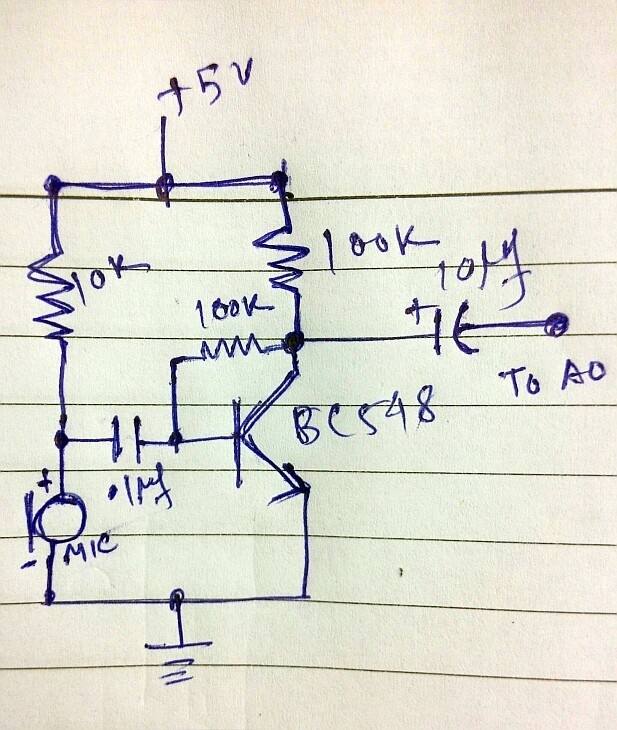 +5V
100K
10K
10µf
100K
+
To A0
BC548
.1µf
+
MIC
-